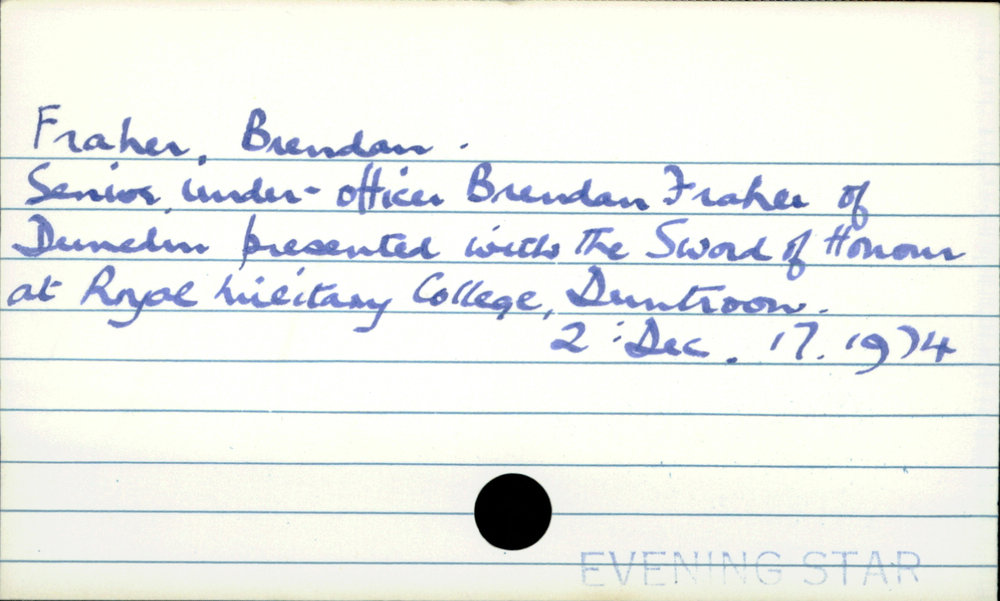 Fraher, Brendan.
Senior under-officer Brendan Fraher of
Dunedin presented with the Sword of Honour
at Royal Military College, Duntroon.
2: Dec. 17. 1974
EVENING STAR